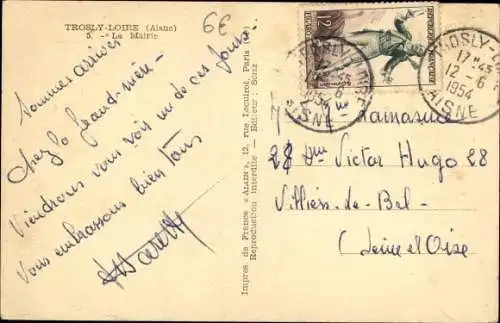 TROSLY-LOIRE (Aisne)
5. - La Mairie
6€
Sommes arrivés
chez la grand-mère.
Viendrons vous voir un de ces jours.
Vous embrassons bien tous
Impres de France « ALAIN », 12, rue Lacuirot, Paris
Reproduction interdite - Editeur: Soiz
12F
TROSLY-LOIRE
17 45
12 - 6
1954
AISNE
TROSLY-LOIRE
17 45
12 - 6
1954
AISNE
28 Victor Hugo 28
Villiers-de-Bel-
(Seine et Oise)